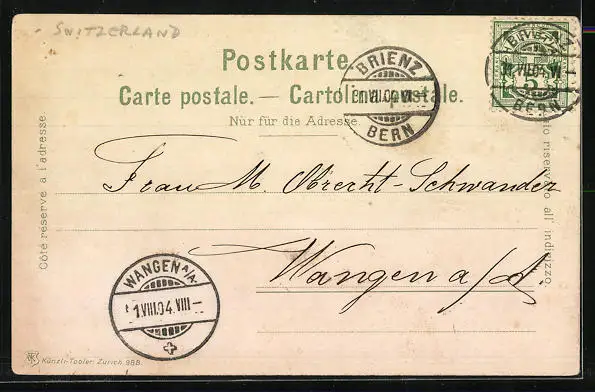 - SWITZERLAND
Postkarte.
Carte postale. — Cartolina postale.
Nur für die Adresse.
Côté réservé à l'adresse.
Lato riservato all' indirizzo.
BRIENZ
VII.04. VI–
BERN
BRIENZ
VII.04. VI
BERN
5
Frau M. Obrecht-Schwander
Wangen a/A.
WANGEN A/A.
1.VIII.04. VIII–
Künzli-Tobler, Zürich 988.